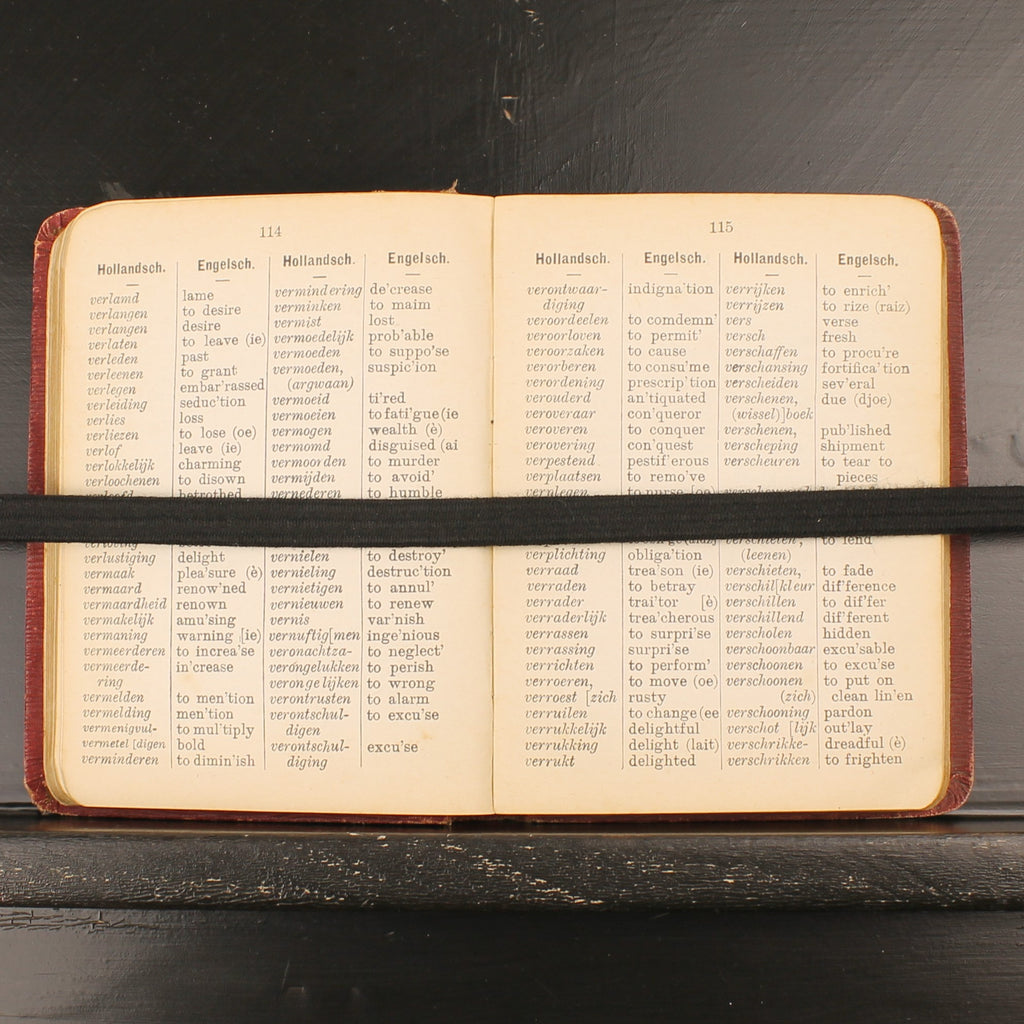 114
Hollandsch. Engelsch. Hollandsch. Engelsch.
verlamd lame
verlangen to desire
verlangen desire
verlaten to leave (ie)
verleden past
verleenen to grant
verlegen embar'rassed
verleiding seduc'tion
verlies loss
verliezen to lose (oe)
verlof leave (ie)
verlokkelijk charming
verloochenen to disown
verloofd betrothed
verlustiging delight
vermaak plea'sure (è)
vermaard renow'ned
vermaardheid renown
vermakelijk amu'sing
vermaning warning [ie)
vermeerderen to increa'se
vermeerde- in'crease
ring
vermelden to men'tion
vermelding men'tion
vermenigvul- to mul'tiply
vermetel [digen bold
verminderen to dimin'ish
vermindering de'crease
verminken to maim
vermist lost
vermoedelijk prob'able
vermoeden to suppo'se
vermoeden, suspic'ion
(argwaan)
vermoeid ti'red
vermoeien to fati'gue(ie
vermogen wealth (è)
vermomd disguised (ai
vermoorden to murder
vermijden to avoid'
vernederen to humble
vernielen to destroy'
vernieling destruc'tion
vernietigen to annul'
vernieuwen to renew
vernis var'nish
vernuftig[men inge'nious
veronachtza- to neglect'
verongelukken to perish
verongelijken to wrong
verontrusten to alarm
verontschul- to excu'se
digen
verontschul- excu'se
diging
115
Hollandsch. Engelsch. Hollandsch. Engelsch.
verontwaar- indigna'tion
diging
veroordeelen to comdemn'
veroorloven to permit'
veroorzaken to cause
verorberen to consu'me
verordening prescrip'tion
verouderd an'tiquated
veroveraar con'queror
veroveren to conquer
verovering con'quest
verpestend pestif'erous
verplaatsen to remo've
verplegen to nurse [oe)
verplichting obliga'tion
verraad trea'son (ie)
verraden to betray
verrader trai'tor [è)
verraderlijk trea'cherous
verrassen to surpri'se
verrassing surpri'se
verrichten to perform'
verroeren, to move (oe)
verroest [zich rusty
verruilen to change (ee
verrukkelijk delightful
verrukking delight (lait)
verrukt delighted
verrijken to enrich'
verrijzen to rize (raiz)
vers verse
versch fresh
verschaffen to procu're
verschansing fortifica'tion
verscheiden sev'eral
verschenen, due (djoe)
(wissel) [boek
verschenen, pub'lished
verscheping shipment
verscheuren to tear to
pieces
verschieten, to lend
(leenen)
verschieten, to fade
verschil[kleur dif'ference
verschillen to dif'fer
verschillend dif'ferent
verscholen hidden
verschoonbaar excu'sable
verschoonen to excu'se
verschoonen to put on
(zich) clean lin'en
verschooning pardon
verschot [lijk out'lay
verschrikke- dreadful (è)
verschrikken to frighten